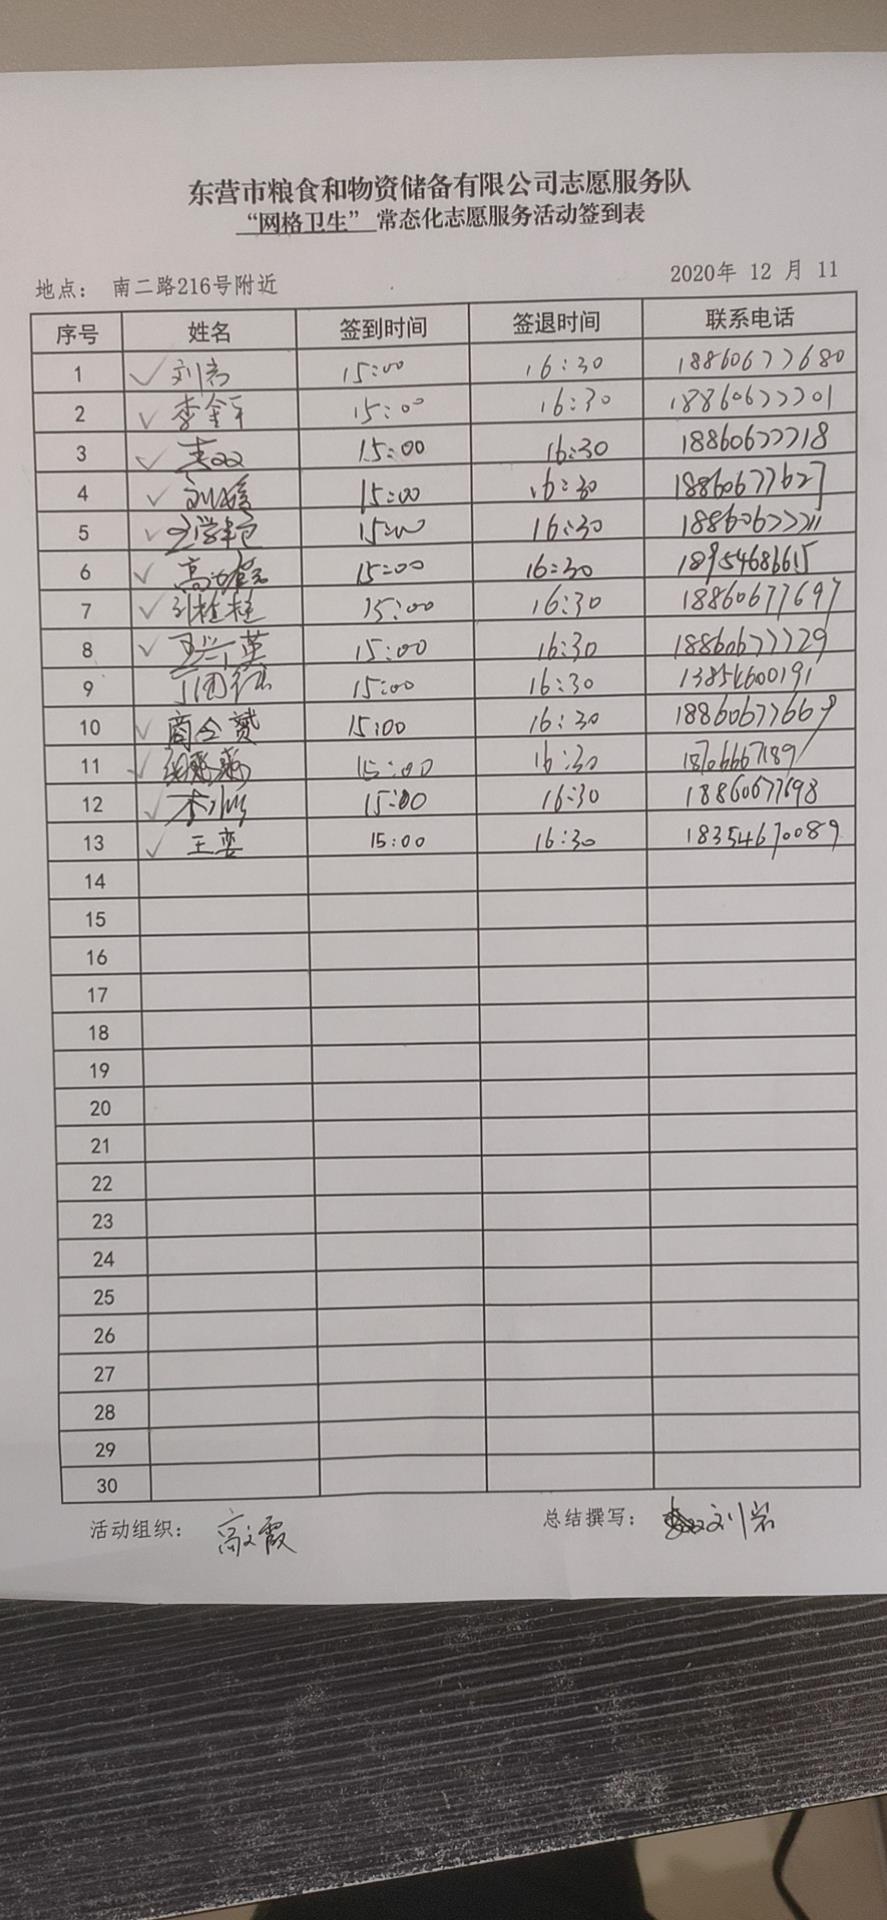 东营市粮食和物资储备有限公司志愿服务队
“网格卫生” 常态化志愿服务活动签到表
地点： 南二路216号附近 2020年 12 月 11
序号 姓名 签到时间 签退时间 联系电话
1 刘岩 15:00 16:30 18860677680
2 李金平 15:00 16:30 18860677701
3 15:00 16:30 18860677718
4 刘媛 15:00 16:30 18860677627
5 15:00 16:30 18860677711
6 高文霞 15:00 16:30 18954686615
7 刘桂桂 15:00 16:30 18860677697
8 卫兰英 15:00 16:30 18860677729
9 15:00 16:30 13854600191
10 商全赞 15:00 16:30 18860677669
11 15:00 16:30 18706667189
12 15:00 16:30 18860677698
13 王娈 15:00 16:30 18354670089
14
15
16
17
18
19
20
21
22
23
24
25
26
27
28
29
30
活动组织： 高文霞 总结撰写： 刘岩